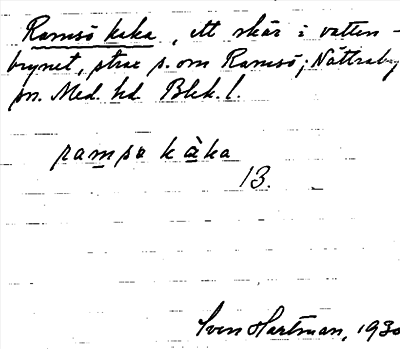 Ramsö kaka, ett skär i vatten-
brynet, strax s. om Ramsö; Nättraby
sn. Med. hd Blek. l.
ramsə kàka
13.
Sven Hartman, 1930